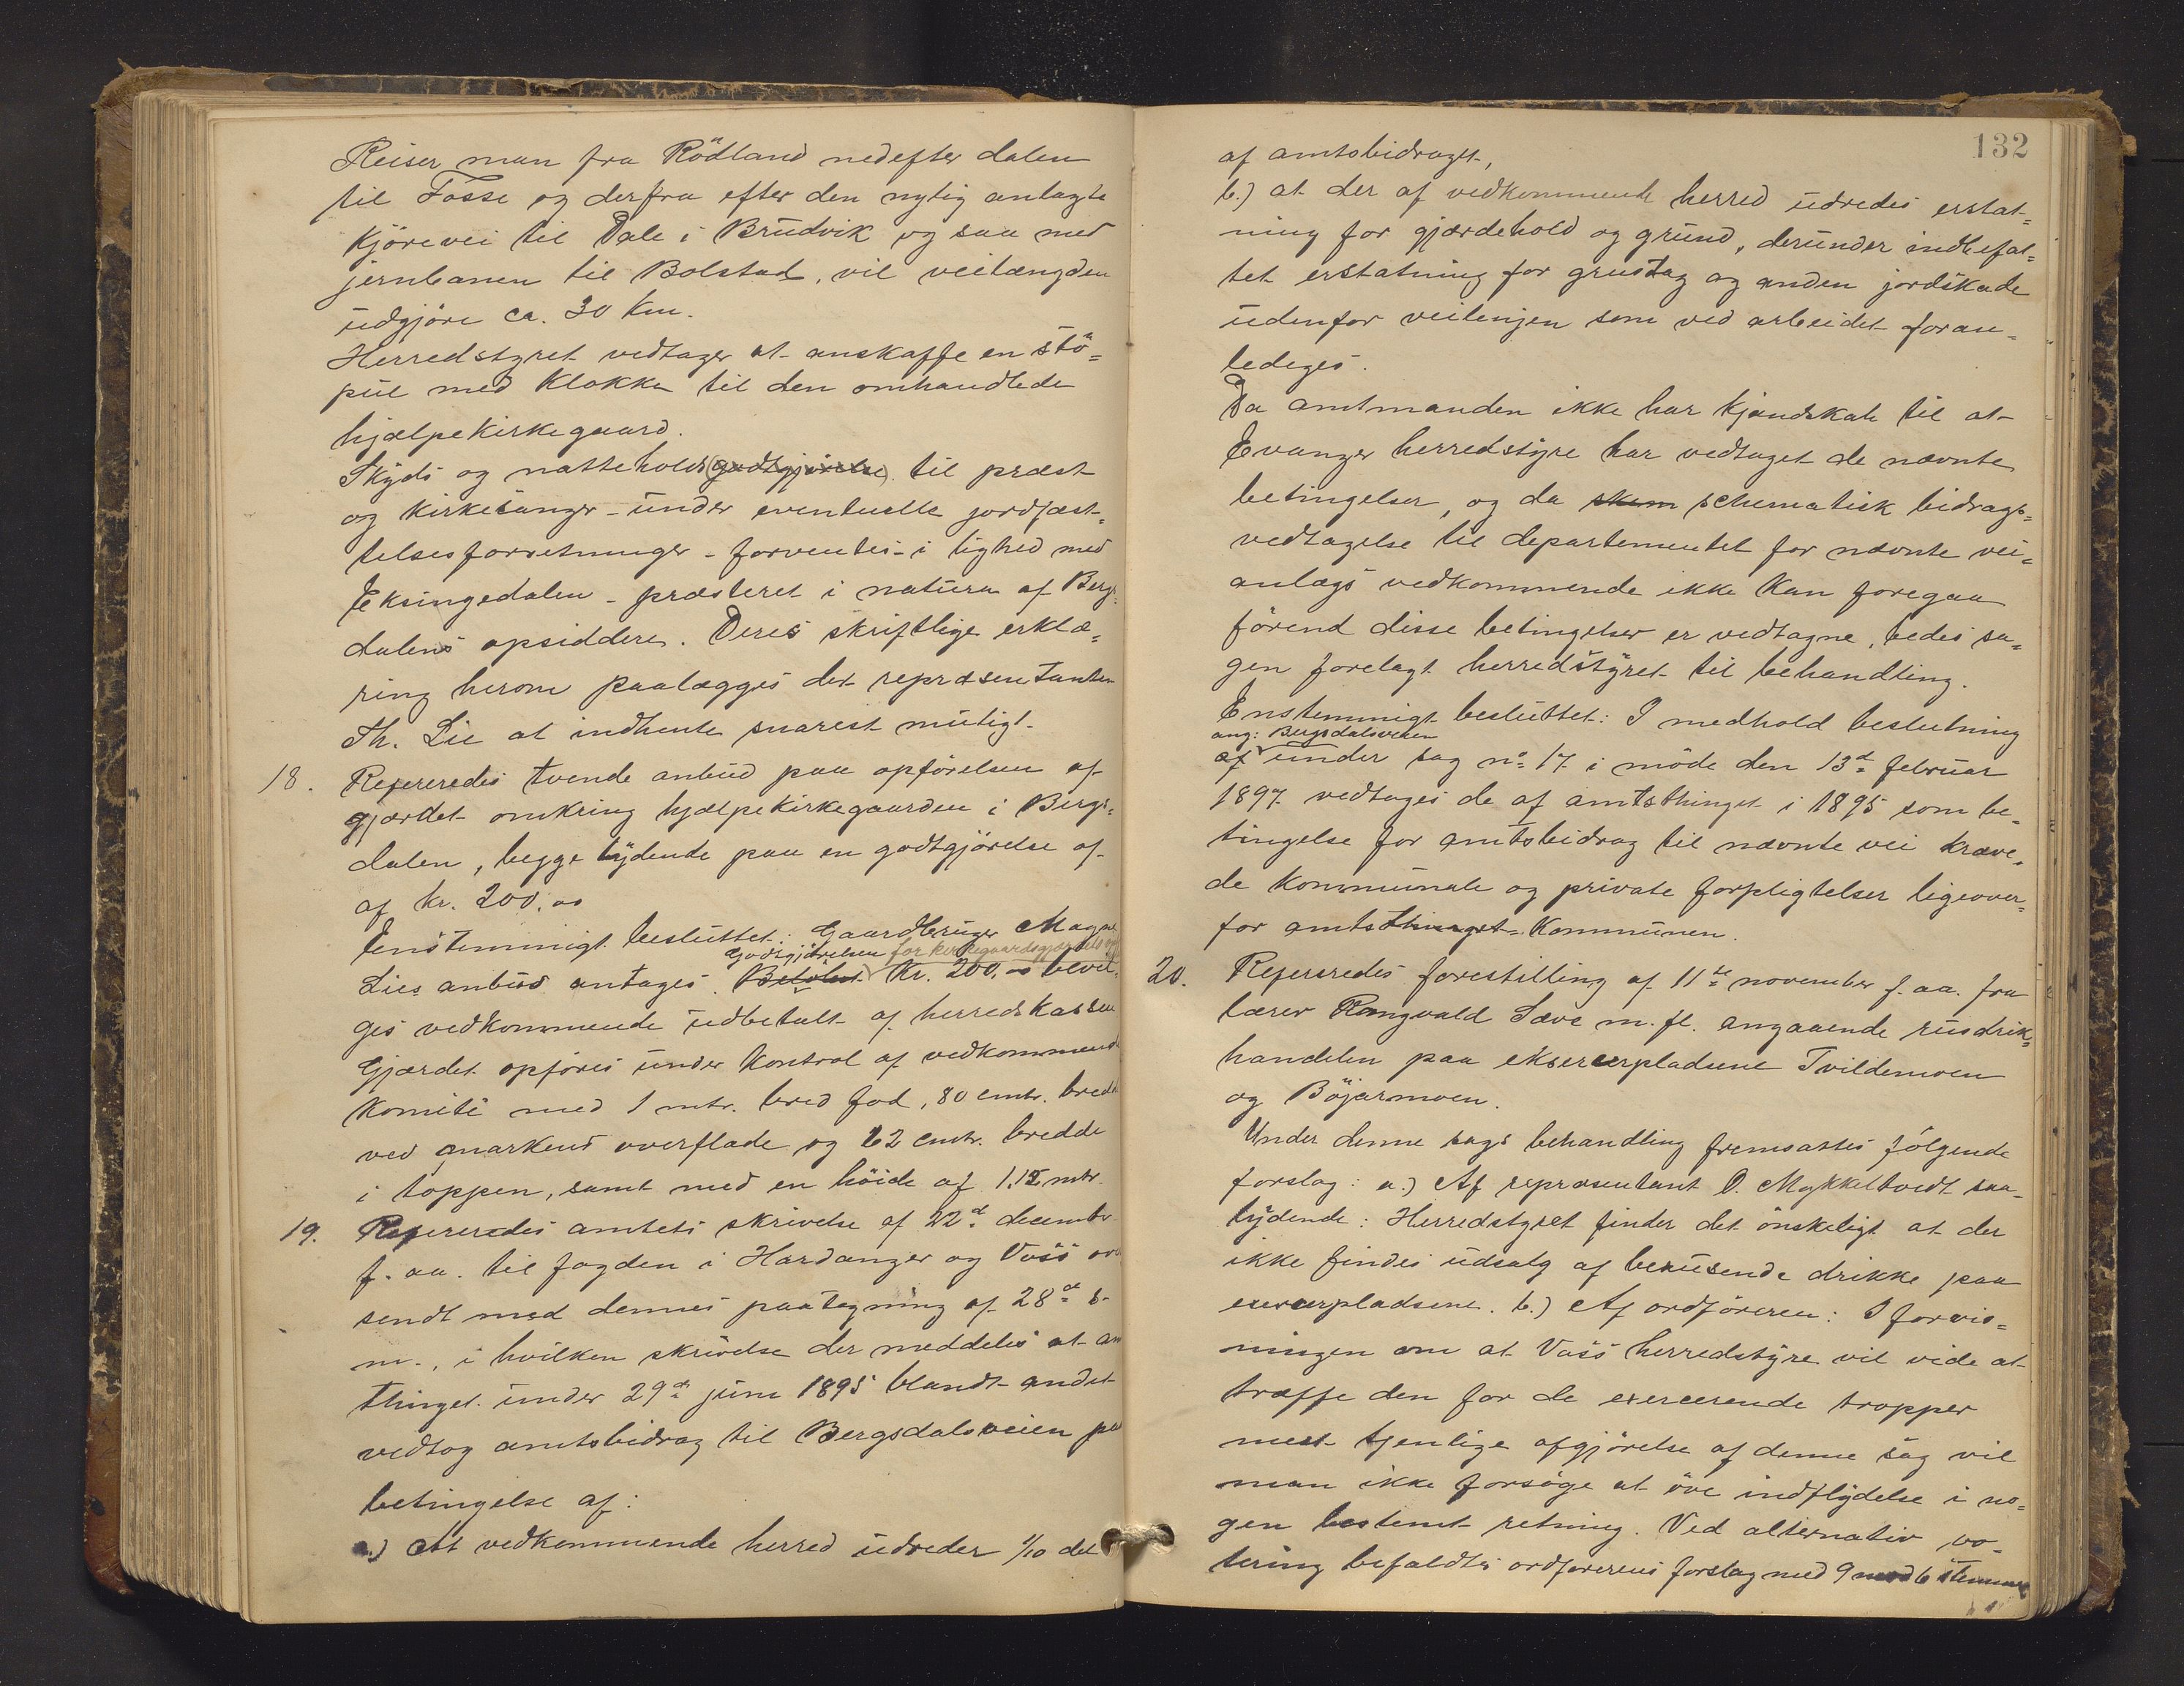 Reiser man fra Rödland nedefter dalen
til Fosse og derfra efter den nylig anlagte
kjörevei til Dale i Brudvik og saa med
jernbanen til Bolstad, vil veilængden
udgjöre ca. 30 km.
Herredstyret vedtager at anskaffe en stö=
pul med klokke til den omhandlede
hjælpekirkegaard.
Skyds og nattehold (godtgjörelse) til præst
og kirkesanger - under eventuelle jordfæst=
telsesforretninger - forventes - i lighed med
Eksingedalen - præsteret i natura af Bergs=
dalens opsiddere. Deres skriftlige erklæ=
ring herom paalægges det repræsentanten
Th. Lie at indhente snarest muligt.
18. Refereredes tvende anbud paa opförelsen af
gjærdet omkring hjælpekirkegaarden i Bergs=
dalen, begge lydende paa en godtgjörelse af
af kr. 200.00
Enstemmigt besluttet: Gaardbruger Magne
Godtgjörelsen for kirkegaardsgjærdets
Lies anbud antages. Beløbet kr. 200.00 bevil=
ges vedkommende udbetalt af herredskassen
Gjærdet opföres under kontrol af vedkommende
komite med 1 mtr. bred fod, 80 cmtr. bredde
ved markens overflade og 62 cmtr. bredde
i toppen, samt med en höide af 1.15 mtr.
19. Refereredes amtets skrivelse af 22de december
f. aa. til fogden i Hardanger og Voss over
sendt med dennes paategning af 28de s.
m., i hvilken skrivelse der meddeles at amts
thinget under 29de juni 1895 blandt andet
vedtog amtsbidrag til Bergsdalsveien paa
betingelse af:
a.) At vedkommende herred udreder 1/10 del
132
af amtsbidraget,
b.) at der af vedkommende herred udredes erstat=
ning for gjærdehold og grund, derunder indbefat=
tet erstatning for grustag og anden jordskade
udenfor veilinjen som ved arbeidet foran=
lediges.
Da amtmanden ikke har kjendskab til at
Evanger herredstyre har vedtaget de nævnte
betingelser, og da skem schematisk bidrags=
vedtagelse til departementet for nævnte vei=
anlægs vedkommende ikke kan foregaa
förend disse betingelser er vedtagne, bedes sa=
gen forelagt herredstyret til behandling.
Enstemmigt besluttet: I medhold beslutning
ang: Bergsdalsveien
af under sag no 17 i möde den 13de februar
1897 vedtages de af amtsthinget i 1895 som be=
tingelse for amtsbidrag til nævnte vei kræve=
de kommunale og private forpligtelser ligeover=
for amtsthinget - kommunen.
20. Refereredes forestilling af 11te november f. aa. fra
lærer Rangvald Sæve m. fl. angaaende rusdrik=
handelen paa ekserserpladsene Tvildemoen
og Böjarmoen.
Under denne sags behandling fremsattes fölgende
forslag: a.) Af repræsentant O. Mykkeltvedt saa=
lydende: Herredstyret finder det önskeligt at der
ikke findes udsalg af berusende drikke paa
exercerpladsene. b.) Af ordföreren: I forvis=
ningen om at Voss herredstyre vil vide at
træffe den for de exercerende tropper
mest tjenlige afgjörelse af denne sag vil
man ikke forsöge at öve indflydelse i no=
gen bestemt retning. Ved alternativ vo=
tering bifaldtes ordförerens forslag med 9 mod 6 stemmer